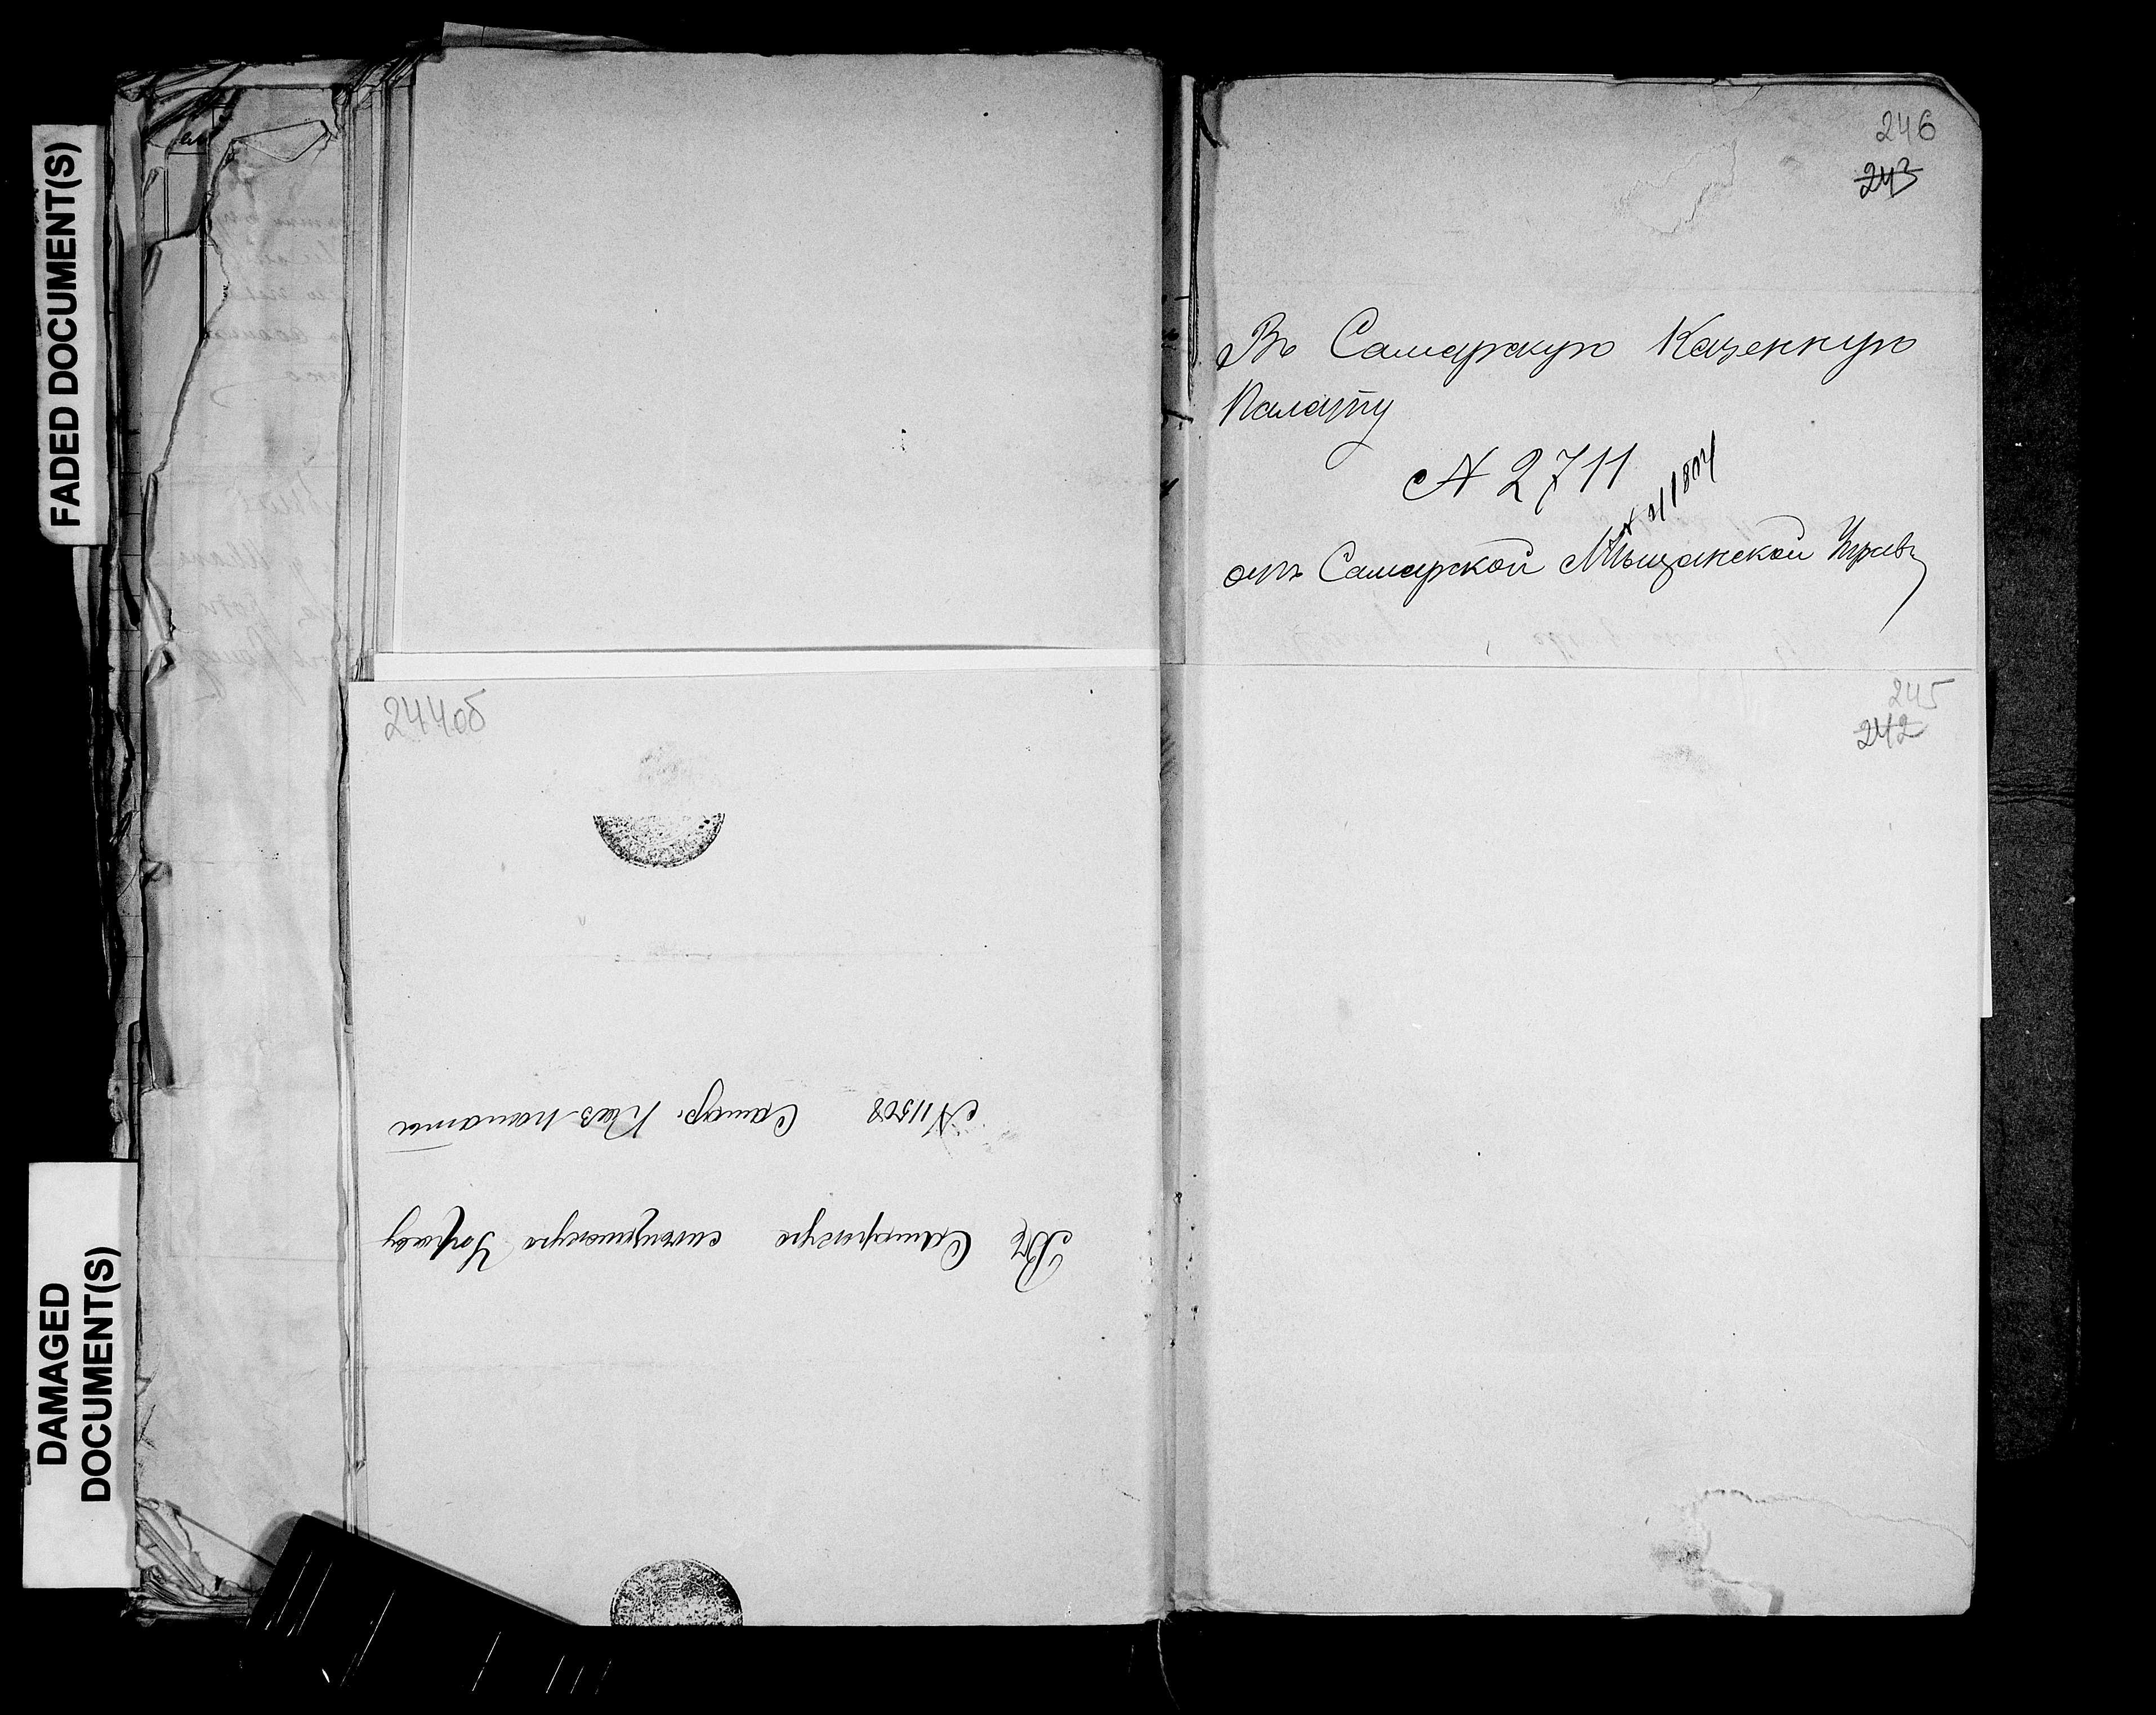 FADED DOCUMENT(S)
DAMAGED
DOCUMENT(S)
244об
Въ Самарскую мещанскую Управу
№ 11508 Самар. Каз. палаты
246
243
Въ Самарскую Казенную
Палату
№ 2711
отъ Самарской Мѣщанской Управы
245
242